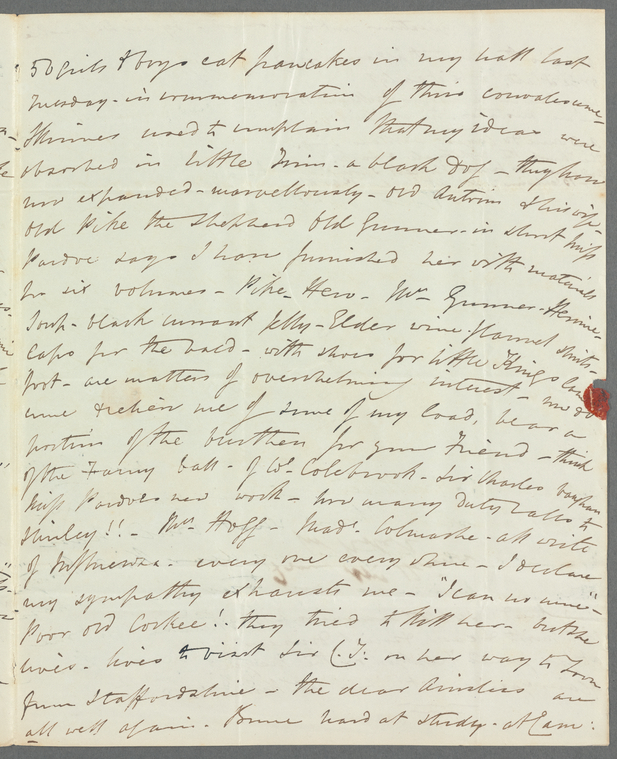 50 girls & boys eat pancakes in my hall last
Tuesday - in commemoration of this convalescence -
used to complain that my ideas were
absorbed in little Trim - a black Dog - they have
now expanded - marvellously - old Antrim & his wife -
Old Pike the Shepherd Old Gunner - in short Miss
Pardoe says I have furnished her with materials
for six volumes - Pike - Hero - Mrs Gunner - Heroine -
Soup - black currant Jelly - Elder wine - flannel shirts -
Caps for the bald - with shoes for little King's
foot - are matters of overwhelming interest - now do
come & relieve me of some of my load, bear a
portion of the burthen for your Friend - think
of the Fancy ball - of Colebrook - Sir Charles
Miss Pardoe's new work - how many Duty calls to
!! - Mrs Hoff - Mad. - all write
of Influenza - every one every - I declare
my sympathy exhausts me - "I can no more" -
Poor old Corkee! - they tried to kill her - but she
lives - lives to visit Sir C.J. on her way to Town
from Staffordshire - the dear Ainslies are
all well again - hard at study - at Cam: